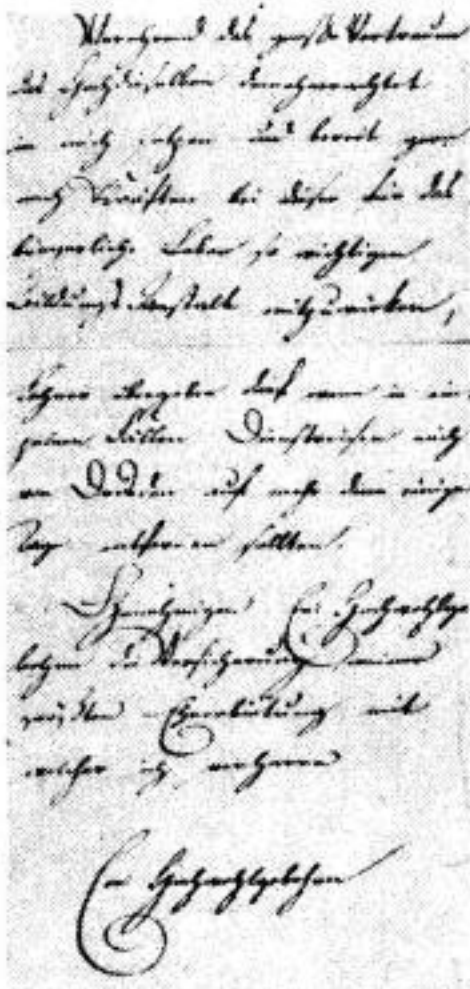 Verehrend das große Vertrauen
das Hochdieselben
in mich setzen und bereit gern
nach Kräften bei dieser für das
bürgerliche Leben so wichtigen
Bildungs Anstalt mitzuwirken,
übergeben darf wenn in ein-
zelnen Fällen Dienstreisen mich
von Dresden auf mehr denn einige
Tage entfernen sollten.
Genehmigen Ew. Hochwohlge
bohren die Versicherung meiner
größten Ehrerbietung mit
welcher ich verharre
Ew Hochwohlgebohren